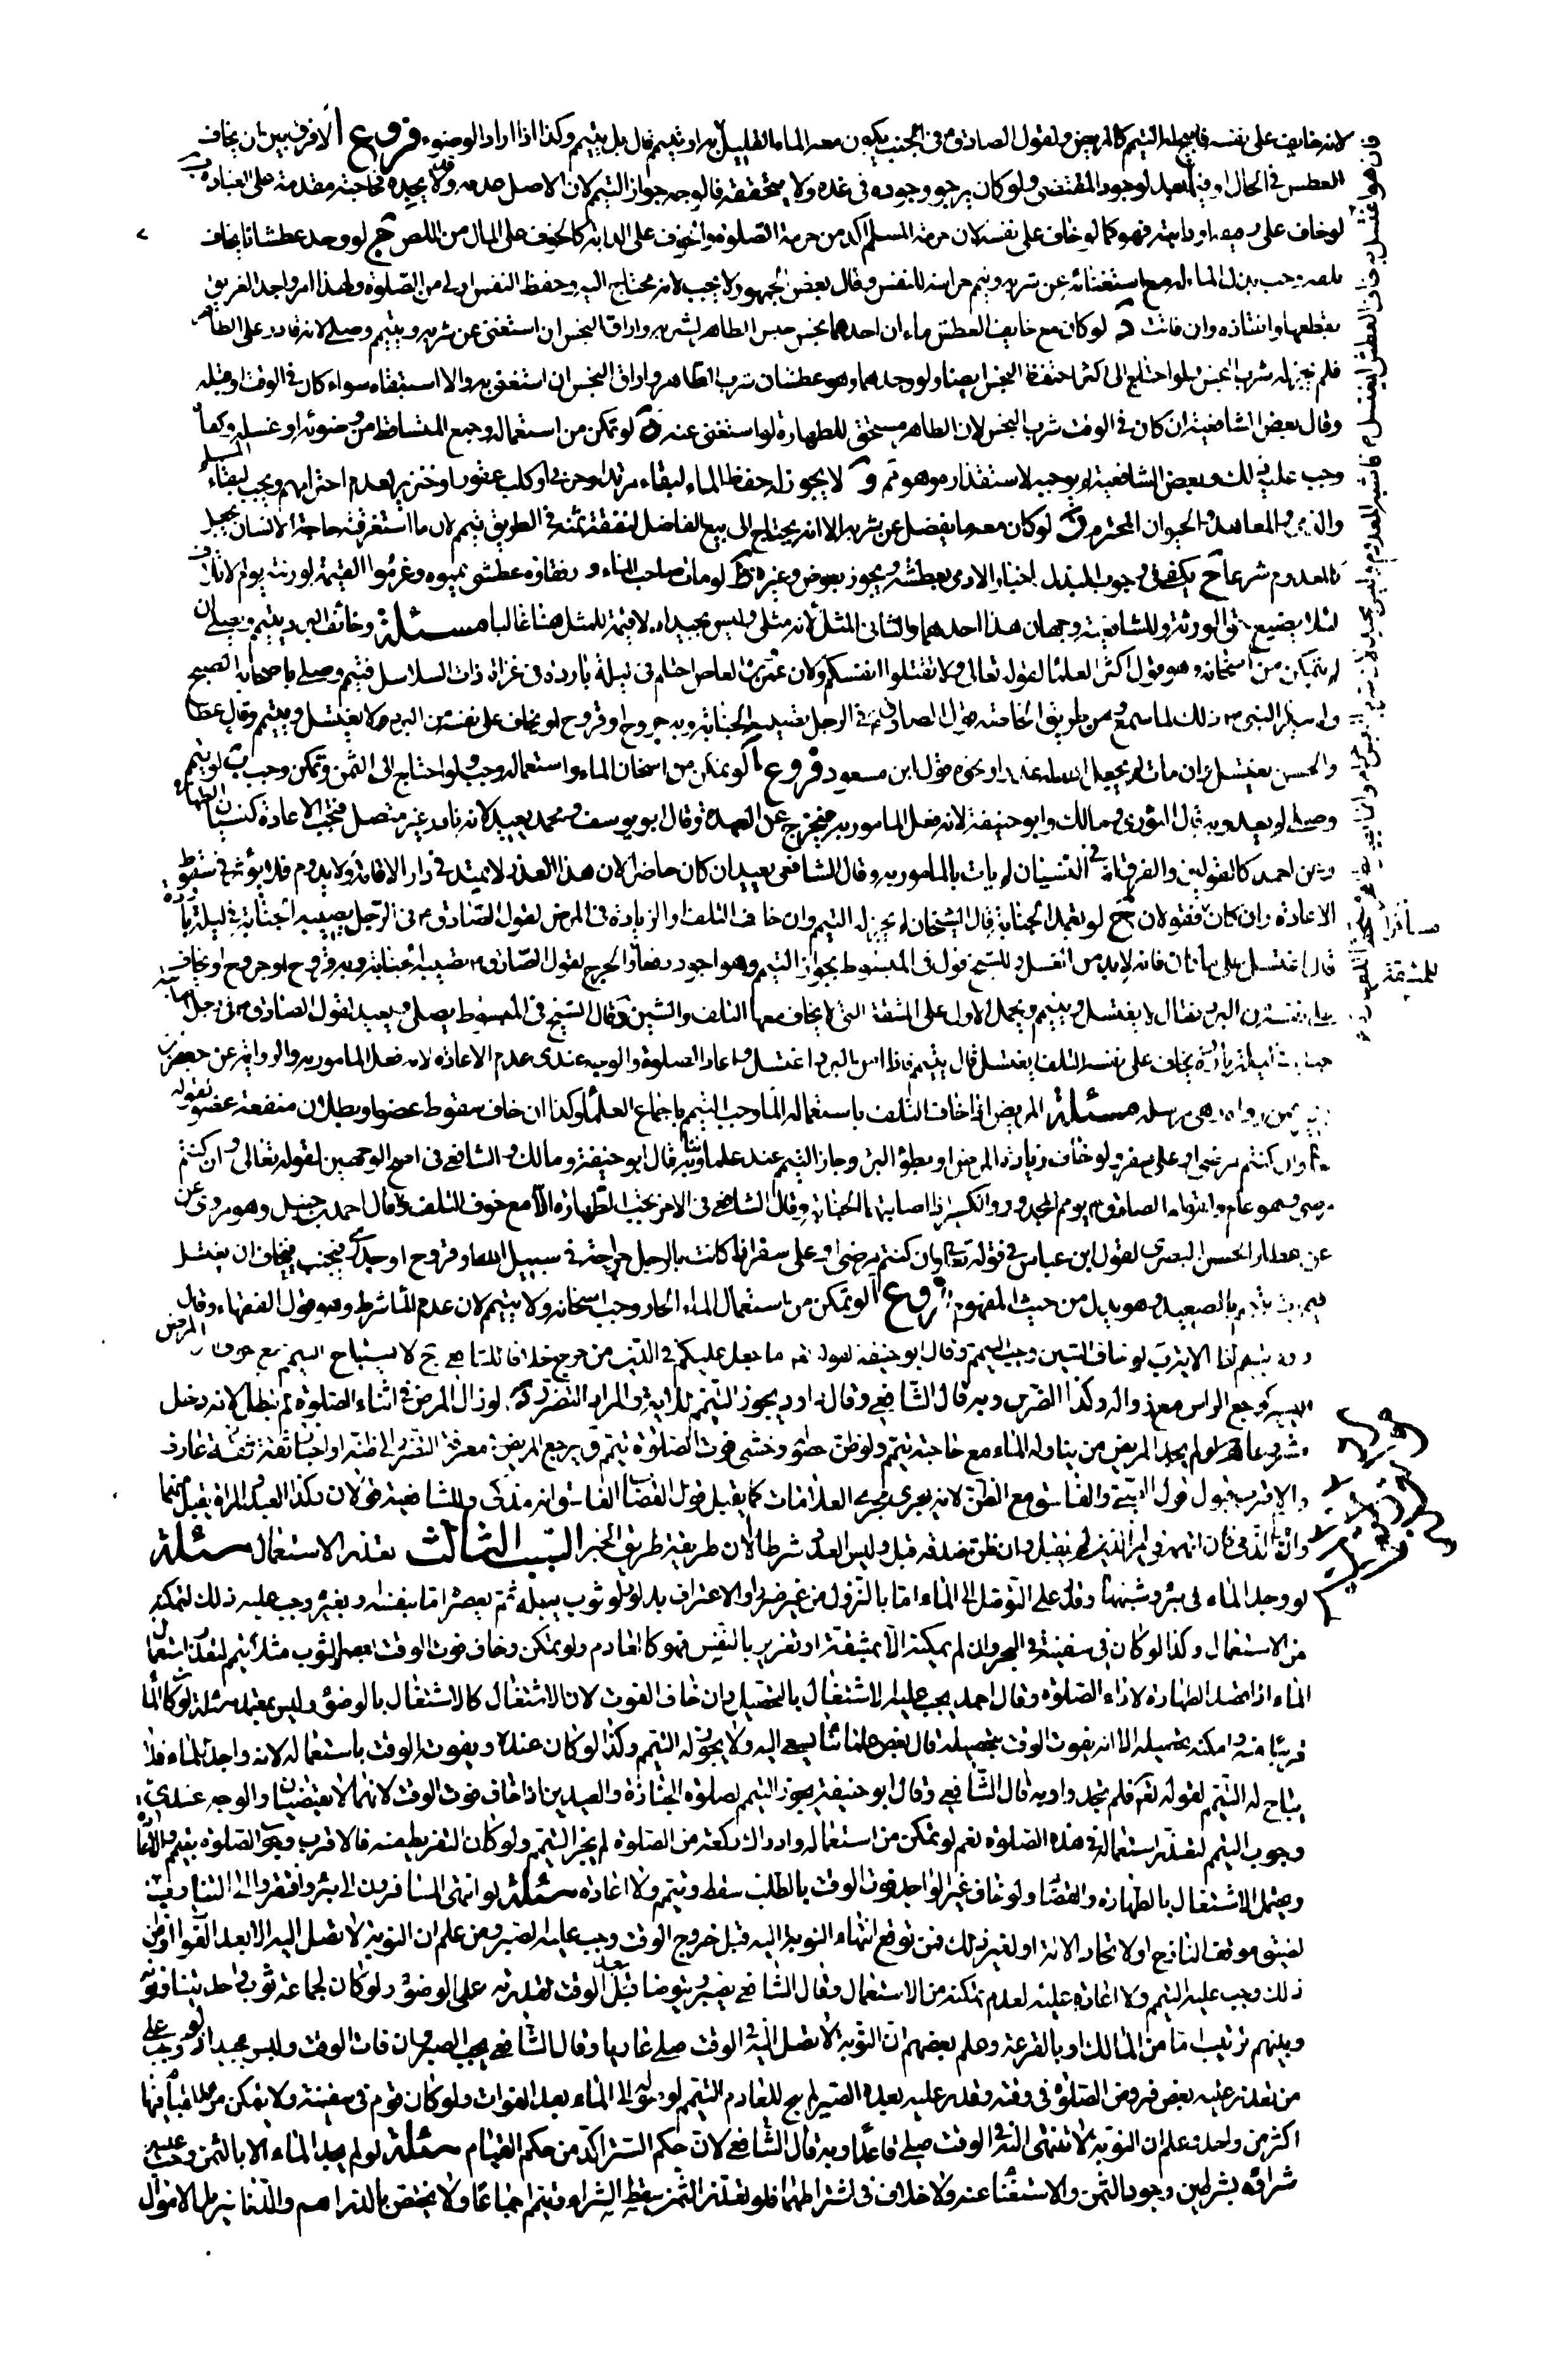 لانه خايف على نفسه فابيح له التيمم كالمريض ولقول الصادق م في الجنب يكون معه الماء القليل به او تيمم قال بل يتيمم وكذا اذا اراد الوضوء فروع آ لا فرق بين ان يخاف
العطش في الحال او لوجود المقتضي ولو كان يرجو وجوده في غده ولا يتحققه فالوجه جواز التيمم لان الاصل عدمه ولا يجده فحاجته مقدمة على العبادة ب
لو خاف على رفيقه او دابته فهو كما لو خاف على نفسه لان حرمة المسلم آكد من حرمة الصلوة والخوف على الدابة كالخوف على المال من اللص ج لو وجد عطشانا يخاف
تلفه وجب بذل الماء له مع استغنائه عن شربه ويتيمم حراسة للنفس وقال بعض الجمهور لا يجب لانه محتاج اليه وحفظ النفس اولى من الصلوة ولهذا امر واجد الغريق
بقطعها وانقاذه وان فاتت د لو كان مع خايف العطش ماءان احدهما نجس حبس الطاهر لشربه واراق النجس ان استغنى عن شربه ويتيمم وصلى لانه قادر على الطاهر
فلم يجز له شرب النجس ولو احتاج الى اكثر احتفظ النجس ايضا ولو وجدهما وهو عطشان شرب الطاهر واراق النجس ان استغنى به والا استبقاه سواء كان في الوقت او قبله
وقال بعض الشافعية ان كان في الوقت شرب النجس لان الطاهر مستحق للطهارة لو استغنى عنه ه لو تمكن من استعماله وجمع المتساقط من وضوئه او غسله وكفاه
وجب عليه ذلك وبعض الشافعية لم يوجبه لاستقذاره وهو وهم و لا يجوز له حفظ الماء لبقاء مرتد او حربي او كلب عقور او خنزير لعدم احترامهم ويجب لبقاء المسلم
والذمي والمعاهد والحيوان المحترم ز لو كان معه ما يفضل عن شربه الا انه يحتاج الى بيع الفاضل لنفقة ثمنه في الطريق تيمم لان ما استغرقته حاجة الانسان يجعل
كالمعدوم شرعا ح يكفي في وجوب البذل اخبار الآدمي بعطشه ويجوز بعوض وغيره ط لو مات صاحب الماء ورفقاؤه عطشى يمموه وغرموا القيمة لورثته يوم الاتلاف
لئلا يضيع حق الورثة وللشافعية وجهان هذا احدهما والثاني المثل لانه مثلي وليس بجيد اذ لا قيمة للمثل هنا غالبا مسئلة وخائف البرد يتيمم ويصلي ان
لم يتمكن من اسخانه وهو قول اكثر العلماء لقوله تعالى ولا تقتلوا انفسكم ولان عمرو بن العاص احتلم في ليلة باردة في غزاة ذات السلاسل فتيمم وصلى باصحابه الصبح
ولم ينكر النبي ص ذلك لما سمع ومن طريق الخاصة قول الصادق م في الرجل تصيبه الجنابة وبه جروح او قروح او يخاف على نفسه من البرد لا يغتسل ويتيمم وقال عطا
والحسن يغتسل وان مات لم يجعل الله له عذرا ونحوه قول ابن مسعود فروع آ لو تمكن من اسخان الماء واستعماله وجب ولو احتاج الى الثمن وتمكن وجب ب لو تيمم
وصلى لم يعد وبه قال الثوري ومالك وابو حنيفة لانه فعل المامور به فيخرج عن العهدة وقال ابو يوسف ومحمد يعيد لانه نادر غير متصل فتجب الاعادة كنسيان الطهارة
وعن احمد كالقولين والفرق ان في النسيان لم يات بالمامور به وقال الشافعي يعيد ان كان حاضرا لان هذا العذر لا يمتد في دار الاقامة ولا يدوم فلا يؤثر في سقوط
الاعادة وان كان فقولان ج لو تعمد الجنابة قال الشيخان لم يجز له التيمم وان خاف التلف او الزيادة في المرض لقول الصادق م في الرجل يصيبه الجنابة في ليلة باردة
قال اغتسل على ما كان فانه لا بد من الغسل وللشيخ قول في المبسوط بجواز التيمم وهو اجود دفعا للحرج لقول الصادق م تصيبه الجنابة وبه قروح او جروح او يخاف
على نفسه من البرد فقال لا يغتسل ويتيمم ويحمل الاول على المشقة التي لا يخاف معها التلف والشين وقال الشيخ في المبسوط يصلي ويعيد لقول الصادق م في رجل اصابته
جنابة في ليلة باردة يخاف على نفسه التلف ان يغتسل قال يتيمم فاذا امن البرد اغتسل واعاد الصلوة والوجه عندي عدم الاعادة لانه فعل المامور به والرواية عن جعفر بن
بشير عمن رواه وهي مرسلة مسئلة المريض اذا خاف التلف باستعماله الماء وجب التيمم باجماع العلماء وكذا ان خاف سقوط عضو او بطلان منفعة عضو لقوله
تعالى وان كنتم مرضى او على سفر ولو خاف زيادة المرض او بطؤ البرء جاز التيمم عند علمائنا وبه قال ابو حنيفة ومالك والشافعي في اصح الوجهين لقوله تعالى وان كنتم
مرضى وهو عام ولقول الصادق م يؤمم المجدور والكسير اذا اصابتهما الجنابة وقال الشافعي في الآخر يجب الطهارة الا مع خوف التلف وقال احمد بن حنبل وهو مروي عن
عن عطاء والحسن البصري لقول ابن عباس في قوله تعالى وان كنتم مرضى او على سفر اذا كانت بالرجل جراحة في سبيل الله او قروح او جدري فيجنب فيخاف ان يغتسل
فيموت يتيمم بالصعيد وهو يدل من حيث المفهوم فروع آ لو تمكن من استعمال الماء الحار وجب اسخانه ولا يتيمم لان عدم الماء شرط وهو قول الفقهاء وقال
داود يتيمم الاقرب لو خاف الشين وجب التيمم وقال ابو حنيفة لقوله تعالى ما جعل عليكم في الدين من حرج خلافا للشافعي ج لا يستباح التيمم مع خوف المرض
اليسير كوجع الراس معه زواله وكذا الضرس وبه قال الشافعي وقال داود يجوز التيمم للآية والمراد التضرر د لو زال المرض في اثناء الصلوة لم تبطل لانه دخل
مشروعا ه لو لم يجد المريض من يناوله الماء مع حاجته تيمم ولو ظن حتى وخشي فوت الصلوة تيمم و يرجع المريض في معرفة التضرر الى ظنه او اخبار ثقة عارف
والاقرب قبول قول الصبي والفاسق مع الظن لانه يجري مجرى العلامات كما يقبل قول القصاب الفاسق انه مذكى وللشافعية قولان وكذا العبد والمراة يقبل منهما
واما الذمي فان اتهمه في امر الدين لم يقبل وان ظن صدقه قبل وليس العدد شرطا لان طريقه طريق الخبر السبب الثالث تعذر الاستعمال مسئلة
لو وجد الماء في بئر وشبهها وقدر على التوصل الى الماء اما بالنزول من غير ضرر او الاغتراف بدلو او ثوب يبله ثم يعصره اما بنفسه او بغيره وجب عليه ذلك لتمكنه
من الاستعمال وكذا لو كان في سفينة في البحر وان لم يمكنه الا بمشقة او تغرير بالنفس فهو كالعادم ولو تمكن وخاف فوت الوقت لعصر الثوب مثلا تيمم لتعذر استعمال
الماء اذ القصد الطهارة لاداء الصلوة وقال احمد يجب عليه الاشتغال بالتحصيل وان خاف الفوت لان الاشتغال كالاشتغال بالوضوء وليس بمعتمد مسئلة لو كان الماء
قريبا منه وامكنه تحصيله الا انه يفوت الوقت بتحصيله قال بعض علمائنا يسعى اليه ولا يجوز له التيمم وكذا لو كان عنده ويفوت الوقت باستعماله لانه واجد للماء فلا
يباح له التيمم لقوله تع فلم تجدوا وبه قال الشافعي وقال ابو حنيفة يجوز التيمم لصلوة الجنازة والعيدين اذا خاف فوت الوقت لانهما لا يقضيان والوجه عندي
وجوب التيمم لتعذر استعماله في هذه الصلوة نعم لو تمكن من استعماله وادراك ركعة من الصلوة لم يجز التيمم ولو كان التفريط منه فالاقرب وجوب الصلوة بتيمم والاعادة
ويحتمل الاشتغال بالطهارة والقضاء ولو خاف غير الواجد فوت الوقت بالطلب سقط وتيمم ولا اعادة مسئلة لو انتهى المسافرون الى بئر وافتقروا الى التناوب
لضيق موقف النازح او لاتحاد الآلة او لغير ذلك فمن توقع انتهاء النوبة اليه قبل خروج الوقت وجب عليه الصبر ومن علم ان النوبة لا تصل اليه الا بعد الفوات او ظن
ذلك وجب عليه التيمم ولا اعادة عليه لعدم تمكنه من الاستعمال وقال الشافعي يصبر ويتوضا بعد الوقت لقدرته على الوضوء ولو كان لجماعة ثوب واحد يتناوبونه
وبينهم ترتيب اما من المالك او بالقرعة وعلم بعضهم ان النوبة لا تصل اليه في الوقت صلى عاريا وقال الشافعي يجب الصبر وان فات الوقت وليس بجيد اذ لو وجب على
من تعذر عليه بعض فروض الصلوة في وقته وقدر عليه بعده الصبر لم يبح للعادم التيمم لو توصل الى الماء بعد الفوات ولو كان قوم في سفينة ولا يتمكن من القيام فيها
اكثر من واحد وعلم ان النوبة لا تنتهي اليه في الوقت صلى قاعدا وبه قال الشافعي لان حكم الستر آكد من حكم القيام مسئلة لو لم يجد الماء الا بالثمن وجب عليه
شراؤه بشرطين وجود الثمن والاستغناء عنه ولا خلاف في اشتراطهما فلو تعذر الثمن سقط الشراء وتيمم اجماعا ولا يختص بالدراهم والدنانير بل الاموال
مسافرا
للمشقة